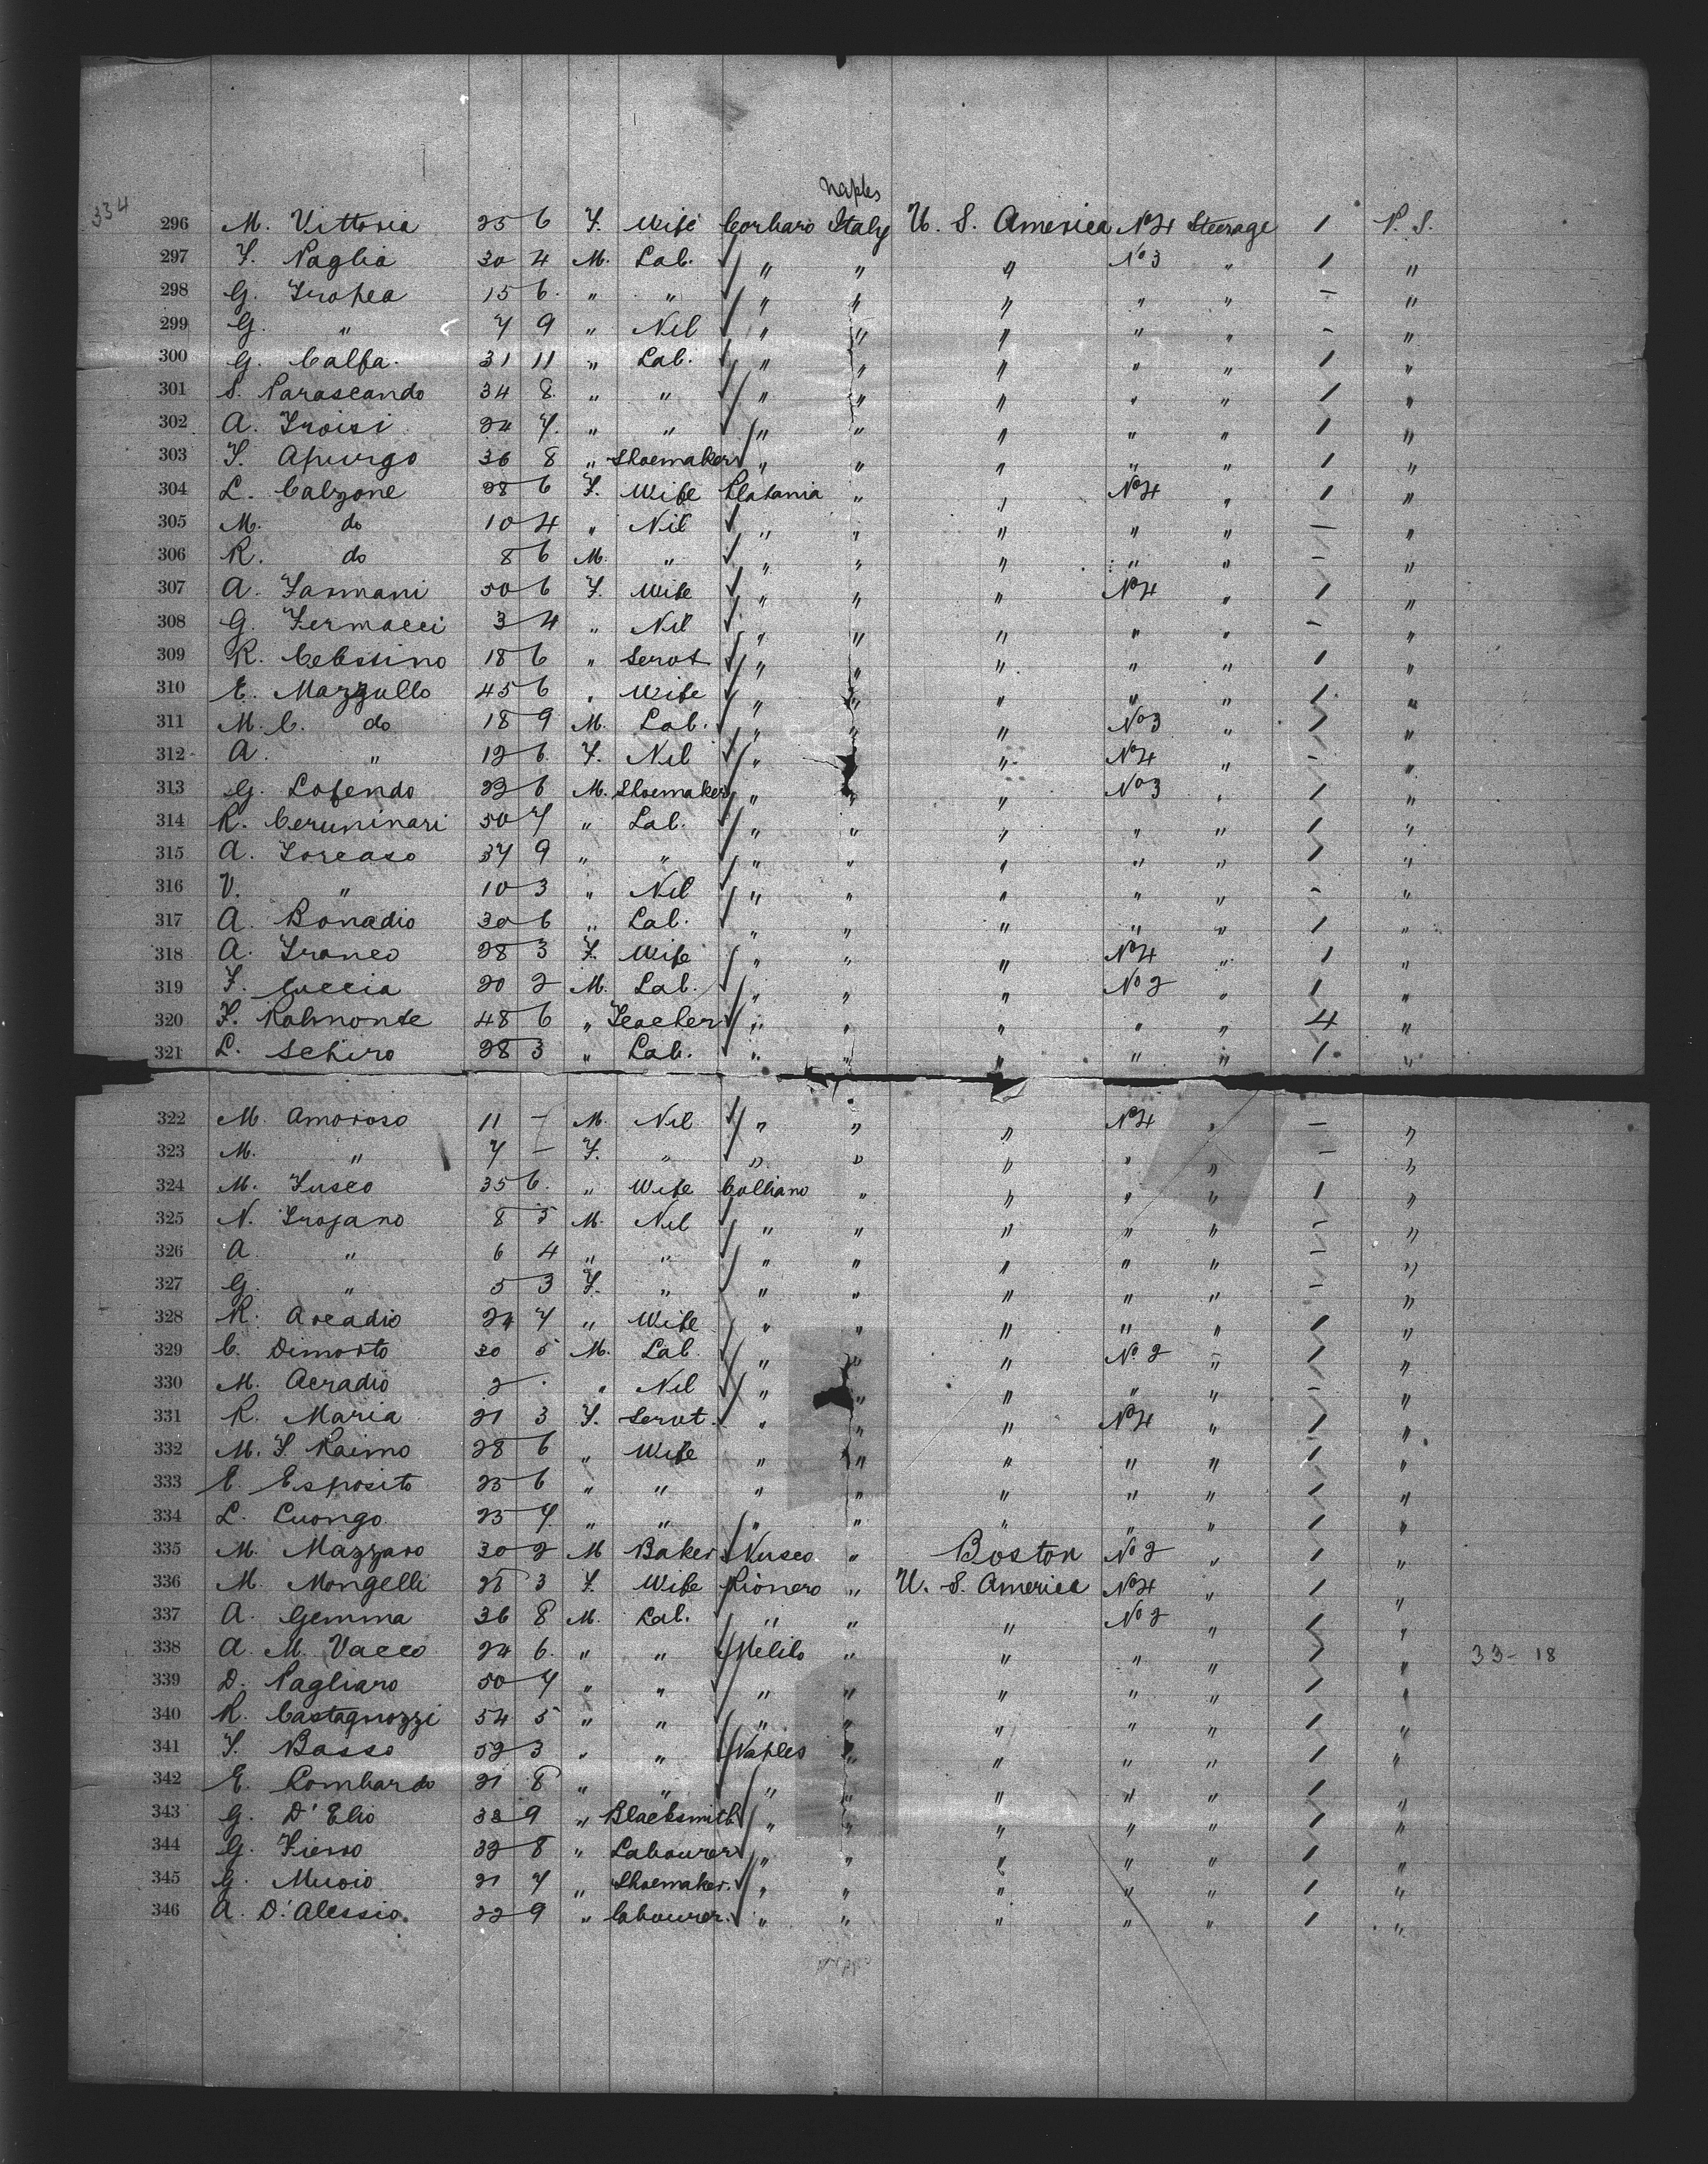 Naples
334
296 M. Vittoria 25 6 F. Wife Corbaro Italy U. S. America No 4 Steerage 1 P. S.
297 F. Paglia 30 4 M. Lab. " " " No 3 " 1 "
298 G. Tropea 15 6 " " " " " " " - "
299 G. " 7 9 " Nil " " " " " - "
300 G. Calfa. 31 11 " Lab. " " " " " 1 "
301 S. Parascando 34 8 " " " " " " " 1 "
302 A. Troisi 24 7. " " " " " " " 1 "
303 F. Apurgo 36 8 " Shoemaker " " " " " 1 "
304 L. Calzone 28 6 F. Wife Platania " " No 4 " 1 "
305 M. do 10 4 " Nil " " " " " - "
306 R. do 8 6 M. " " " " " " - "
307 A. 50 6 F. Wife " " " No 4 " 1 "
308 G. 3 4 " Nil " " " " " - "
309 R. Celestino 18 6 " Servt " " " " " 1 "
310 E. Mazzullo 45 6 " Wife " " " " " 1 "
311 M. C. do 18 9 M. Lab. " " " No 3 " 1 "
312 A. " 12 6 F. Nil " " " No 4 " - "
313 G. Lofendo 23 6 M. Shoemaker " " " No 3 " 1 "
314 R. 50 7 " Lab. " " " " " 1 "
315 A. 37 9 " " " " " " " 1 "
316 V. " 10 3 " Nil " " " " " - "
317 A. Bonadio 30 6 " Lab. " " " " " 1 "
318 A. Franco 28 3 F. Wife " " " No 4 " 1 "
319 F. Cuccia 20 2 M. Lab. " " " No 2 " 1 "
320 F. Kalmonte 48 6 " Teacher " " " " " 4 "
321 L. Schiro 28 3 " Lab. " " " " " 1 "
322 M. Amoroso 11 - M. Nil " " " No 4 " - "
323 M. " 7 - F. " " " " " " - "
324 M. Fusco 35 6 " Wife Colliano " " " " 1 "
325 N. Trojano 8 5 M. Nil " " " " " - "
326 A " 6 4 " " " " " " " - "
327 G. " 5 3 F. " " " " " " - "
328 R. Arcadio 24 7 " Wife " " " " " 1 "
329 C. Dimorto 30 5 M. Lab. " " " No. 2 " 1 "
330 M. Acradio 2 . " Nil " " " " " - "
331 R. Maria 21 3 F. Servt. " " " No 4 " 1 "
332 M. F. Raimo 28 6 " Wife " " " " " 1 "
333 E. Esposito 25 6 " " " " " " " 1 "
334 L. Luongo 25 7 " " " " " " " 1 "
335 M. Mazzaro 30 2 M Baker Nusco " Boston No 2 " 1 "
336 M. Mongelli 25 3 F. Wife Rionero " U. S. America No 4 " 1 "
337 A. Gemma 36 8 M. Lab. " " " No 2 " 1 "
338 A. M. Vacco 24 6. " " Melito " " " " 1 " 33-18
339 D. Pagliaro 50 7 " " " " " " " 1 "
340 R. Castagnozzi 54 5 " " " " " " " 1 "
341 F. Basso 52 3 " " Naples " " " " 1 "
342 E. Lombardo 21 8 " " " " " " " 1 "
343 G. D'Elio 33 9 " Blacksmith " " " " " 1 "
344 G. Fierro 32 8 " Labourer " " " " " 1 "
345 G. Muoio 21 7 " Shoemaker. " " " " " 1 "
346 A. D'Alessio. 22 9 " Labourer. " " " " " 1 "